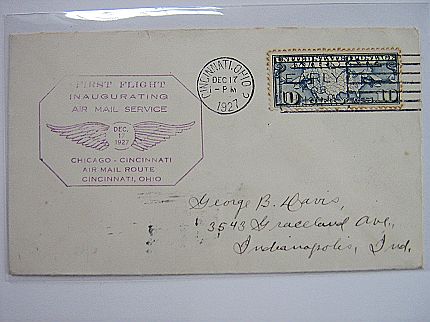 FIRST FLIGHT
INAUGURATING
AIR MAIL SERVICE
DEC.
17
1927
CHICAGO - CINCINNATI
AIR MAIL ROUTE
CINCINNATI, OHIO
CINCINNATI, OHIO 2
DEC 17
1 - PM
1927
UNITED STATES POSTAGE
10 10
George B. Davis,
3543 Graceland Ave.,
Indianapolis, Ind.